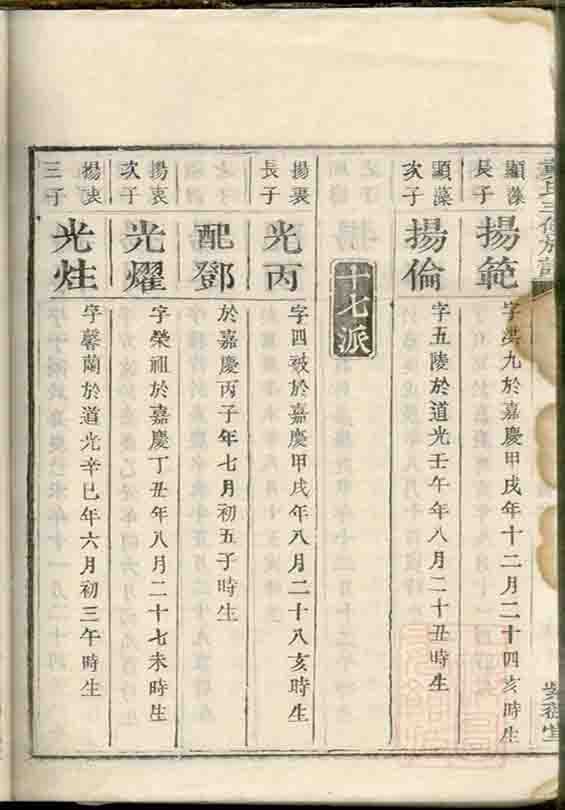 顯藻長子
揚範
字洪九於嘉慶甲戌年十二月二十四亥時生
顯藻次子
揚倫
字五陵於道光壬午年八月二十丑時生
十七派
揚裴長子
光丙
字四教於嘉慶甲戌年八月二十八亥時生
配鄧
於嘉慶丙子年七月初五子時生
揚衷次子
光燿
字榮祖於嘉慶丁丑年八月二十七未時生
揚衷三子
光炷
字馨蘭於道光辛巳年六月初三午時生